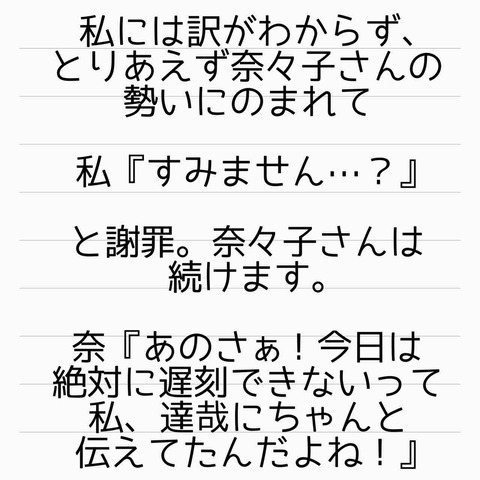 私には訳がわからず、
とりあえず奈々子さんの
勢いにのまれて
私『すみません…？』
と謝罪。奈々子さんは
続けます。
奈『あのさぁ！今日は
絶対に遅刻できないって
私、達哉にちゃんと
伝えてたんだよね！』